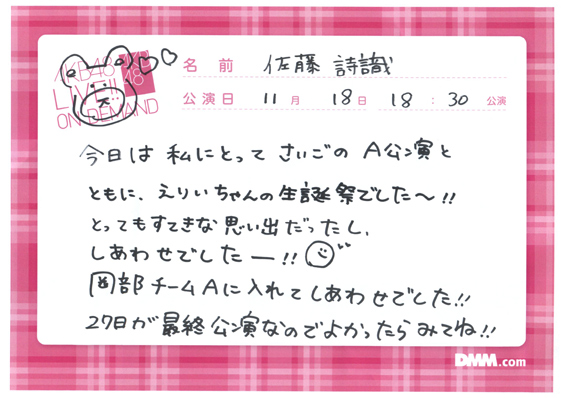 AKB48
LIVE!!
ON DEMAND
名 前 佐藤 詩識
公演日 11月 18日 18:30 公演
今日は 私にとって さいごの A公演と
ともに、えりいちゃんの生誕祭でした〜!!
とってもすてきな思い出だったし、
しあわせでしたー!!
岡部チームAに入れてしあわせでした!!
27日が最終公演なのでよかったらみてね!!
DMM.com